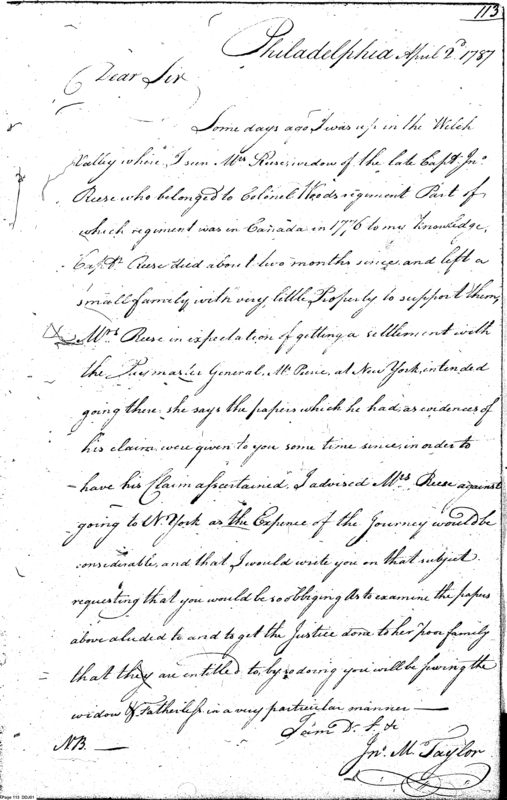 113
Philadelphia April 2d. 1787
Dear Sir
Some days ago, I was up in the Welch
Valley where I seen Mrs Reese, widow of the late Capt. Jno.
Reese who belonged to Colonel Woods regiment Part of
which regiment was in Canada in 1776 to my knowledge,
Capt. Reese died about two months since and left a
small family with very little Property to support them,
Mrs Reese in expectation of getting a settlement with
the Paymaster General, Mr. Pierce, at New York, intended
going there she says the papers which he had, as evidences of
his claim were given to you some time since, in order to
have his Claim assertained, I advised Mrs Reese against
going to N. York as the Expence of the Journey would be
considerable, and that I would write you on that subject
requesting that you would be so obliging as to examine the papers
above aluded to and to get the Justice done to her poor family
that they are entitled to, by so doing you will be serving the
widow & Fatherless in a very particular manner —
I am D. S. &c
NB. —
Jno. M. Taylor